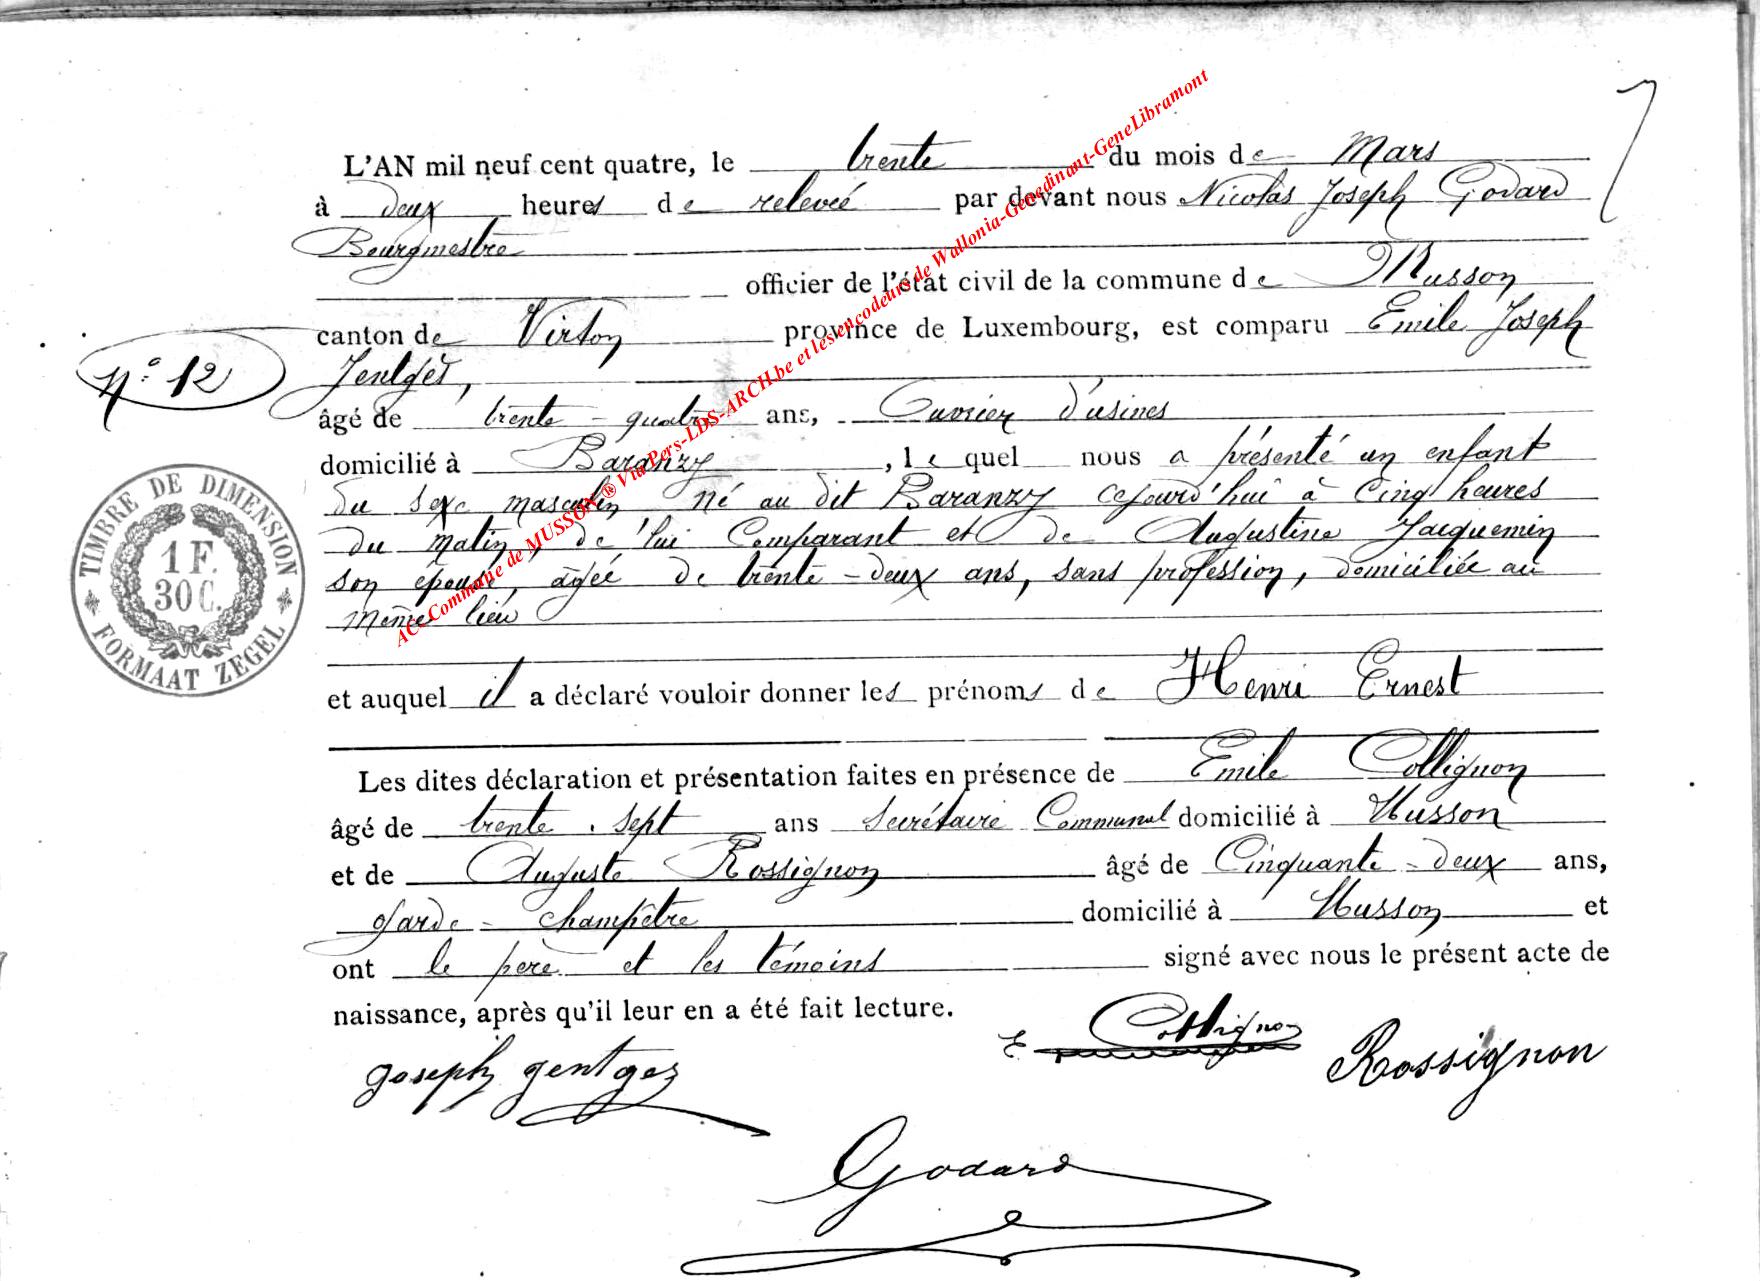 7
L'AN mil neuf cent quatre, le trente du mois de Mars
à deux heures de relevée par devant nous Nicolas Joseph Godard
Bourgmestre
officier de l'état civil de la commune de Musson
canton de Virton province de Luxembourg, est comparu Emile Joseph
N° 12
Jentgès,
âgé de trente-quatre ans, Ouvrier d'usines
domicilié à Baranzy, lequel nous a présenté un enfant
du sexe masculin né au dit Baranzy cejourd'hui à Cinq heures
du matin, de lui Comparant et de Augustine Jacquemin
son épouse, âgée de trente-deux ans, sans profession, domiciliée au
même lieu
TIMBRE DE DIMENSION
1 F.
30 C.
FORMAAT ZEGEL
et auquel il a déclaré vouloir donner les prénoms de Henri Ernest
Les dites déclaration et présentation faites en présence de Emile Collignon
âgé de trente-sept ans Secrétaire Communal domicilié à Musson
et de Auguste Rossignon âgé de Cinquante-deux ans,
garde-champêtre domicilié à Musson et
ont le père et les témoins signé avec nous le présent acte de
naissance, après qu'il leur en a été fait lecture.
joseph gentges
E Collignon
Rossignon
Godard
AC-Commune de MUSSON ® Via Pers-LDS-ARCH.be et les encodeurs de Wallonia-Genedinant-GeneLibramont